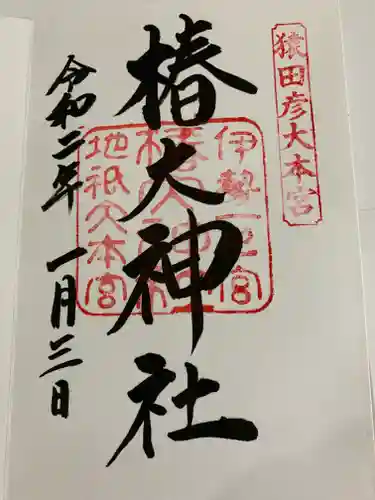 猿田彦大本宮
椿大神社
伊勢一之宮
椿大神社
地祇大本宮
令和二年 一月三日